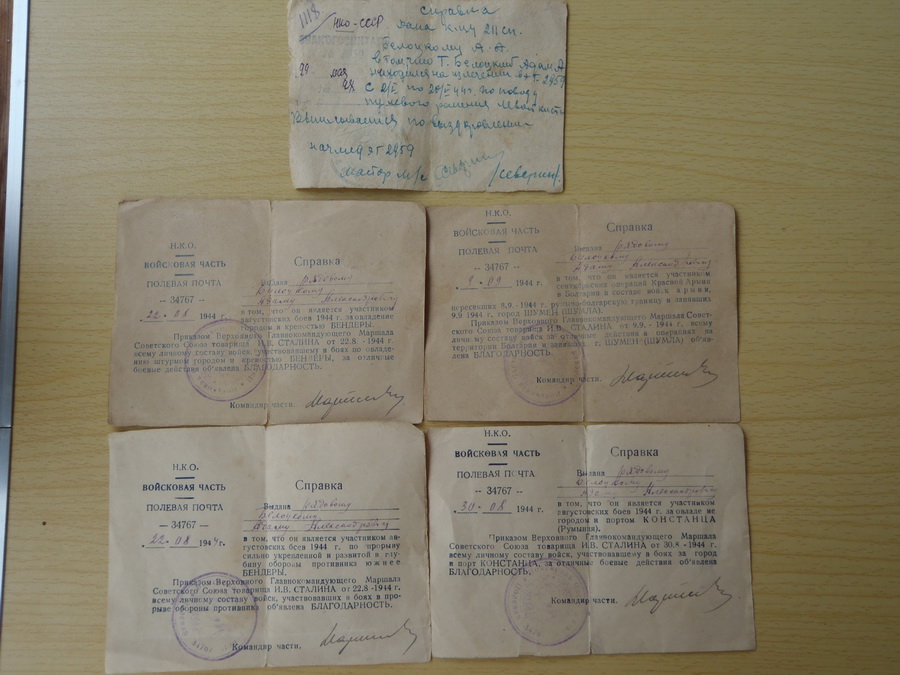 1118
НКО-СССР
Справка
Дана к-цу 211 сп.
Белоцкому А. А.
в том что т. Белоцкий Адам А.
29 мая находился на излечении в эг 2959
с 2/V по 28/V 44г. по поводу
пулевого ранения левой кисти
Выписывается по выздоровлении
нач. мед эг 2959
майор м/с /Северин/
Н.К.О.
ВОЙСКОВАЯ ЧАСТЬ
ПОЛЕВАЯ ПОЧТА
— 34767 —
22 . 08 1944 г.
Справка
Выдана рядовому
Белоцкому
Адаму Александровичу
в том, что он является участником
августовских боев 1944 г. за овладение
городом и крепостью БЕНДЕРЫ.
Приказом Верховного Главнокомандующего Маршала
Советского Союза товарища И.В. СТАЛИНА от 22.8 -1944 г.
всему личному составу войск, участвовавшему в боях по овладе-
нию штурмом городом и крепостью БЕНДЕРЫ, за отличные
боевые действия об'явлена БЛАГОДАРНОСТЬ.
Командир части.
Н.К.О.
ВОЙСКОВАЯ ЧАСТЬ
ПОЛЕВАЯ ПОЧТА
— 34767 —
9 . 09 1944 г.
Справка
Выдана рядовому
Белоцкому
Адаму Александровичу
в том, что он является участником
сентябрьских операций Красной Армии
в Болгарии в составе войск армии,
пересекших 8,9. -1944 г. румыно-болгарскую границу и занявших
9.9 1944 г. город ШУМЕН (ШУМЛА).
Приказом Верховного Главнокомандующего Маршала Совет-
ского Союза товарища И.В. СТАЛИНА от 9.9. - 1944 г. всему
личному составу войск за отличные действия в операциях на
территории Болгарии и занятие г. ШУМЕН (ШУМЛА) об'яв-
лена БЛАГОДАРНОСТЬ.
Командир части
Н.К.О.
ВОЙСКОВАЯ ЧАСТЬ
ПОЛЕВАЯ ПОЧТА
— 34767 —
22 . 08 1944 г.
Справка
Выдана рядовому
Белоцкому
Адаму Александровичу
в том, что он является участником ав-
густовских боев 1944 г. по прорыву
сильно укрепленной и развитой в глу-
бину обороны противника южнее
БЕНДЕРЫ.
Приказом Верховного Главнокомандующего Маршала
Советского Союза товарища И.В. СТАЛИНА от 22.8 -1944 г.
всему личному составу войск, участвовавших в боях в про-
рыве обороны противника об'явлена БЛАГОДАРНОСТЬ.
34767
Командир части.
Н.К.О.
ВОЙСКОВАЯ ЧАСТЬ
ПОЛЕВАЯ ПОЧТА
— 34767 —
30 . 08 1944 г.
Справка
Выдана рядовому
Белоцкому
Адаму Александровичу
в том, что он является участником
августовских боев 1944 г. за овладе ние
городом и портом КОНСТАНЦА
(Румыния).
Приказом Верховного Главнокомандующего Маршала
Советского Союза товарища И.В. СТАЛИНА от 30.8 -1944 г.
всему личному составу войск, участвовавшему в боях за город
и порт КОНСТАНЦА, за отличные боевые действия об'явлена
БЛАГОДАРНОСТЬ.
Командир части